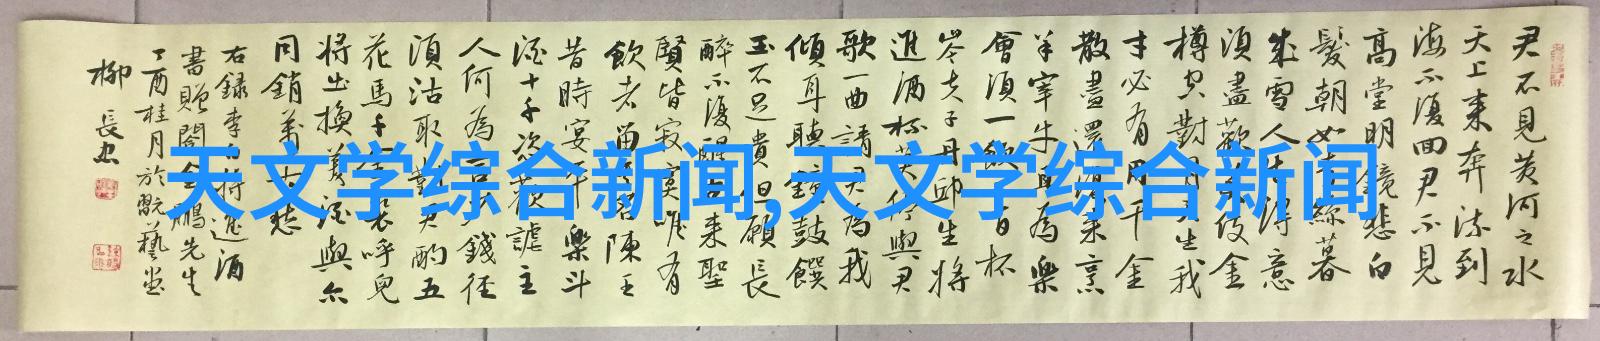 君不見黃河之水
天上來奔流到
海不復回君不見
高堂明鏡悲白
髮朝如青絲暮
成雪人生得意
須盡歡莫使金
樽空對月天生我
材必有用千金
散盡還復來烹
羊宰牛且為樂
會須一飲三百杯
岑夫子丹邱生將
進酒杯莫停與君
歌一曲請君為我
傾耳聽鐘鼓饌
玉不足貴但願長
醉不復醒古來聖
賢皆寂寞唯有
飲者留其名陳王
昔時宴平樂斗
酒十千恣歡謔主
人何為言少錢徑
須沽取對君酌五
花馬千金裘呼兒
將出換美酒與爾
同銷萬古愁
右錄李白將進酒
書贈閣金鵬先生
丁酉桂月於翫藝堂
柳長忠
天文学综合新闻,天文学综合新闻